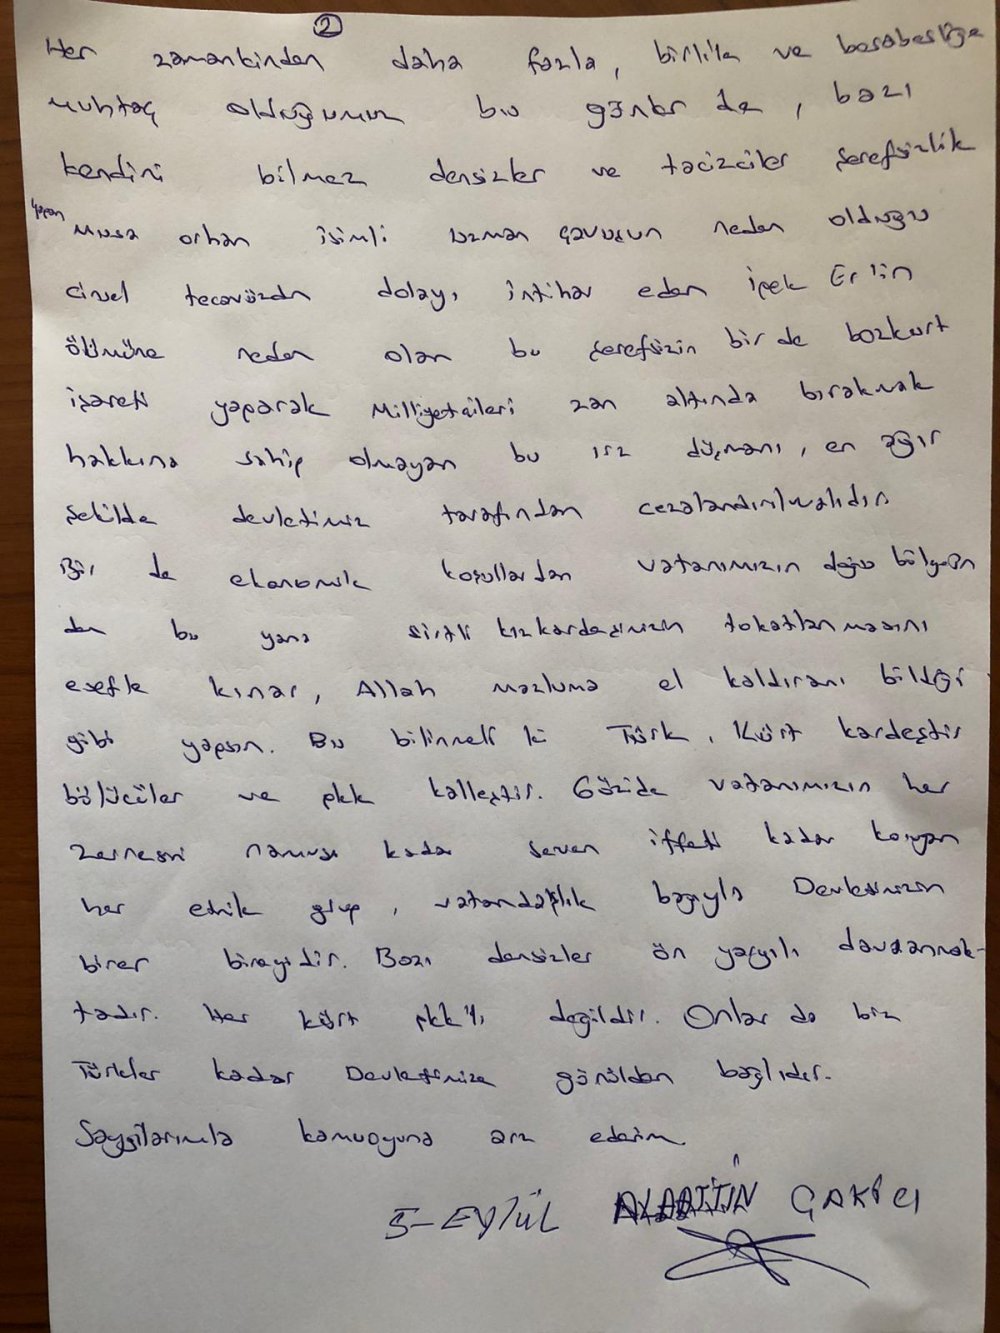 2
Her zamankinden daha fazla, birlik ve beraberliğe
muhtaç olduğumuz bu günler de, bazı
kendini bilmez densizler ve tacizciler şerefsizlik
yapan Musa orhan isimli uzman çavuşun neden olduğu
cinsel tecavüzden dolayı intihar eden ipek Er'in
ölümüne neden olan bu şerefsizin bir de bozkurt
işareti yaparak Milliyetcileri zan altında bırakmak
hakkına sahip olmayan bu ırz düşmanı, en ağır
şekilde devletimiz tarafından cezalandırılmalıdır.
Bir de ekonomik koşullardan vatanımızın doğu bölgesin
den bu yana kızkardeşimizin tokatlanmasını
esefle kınar, Allah mazluma el kaldıranı bildiği
gibi yapsın. Bu bilinmeli ki Türk, Kürt kardeştir
bölücüler ve pkk kalleştir. Gözide vatanımızın her
zerresini namusu kadar seven iffeti kadar koruyan
her etnik grup, vatandaşlık bağıyla Devletimizin
birer bireyidir. Bazı densizler ön yargılı davranmak-
tadır. Her kürt pkk'lı değildir. Onlar da biz
Türkler kadar Devletimize gönülden bağlıdır.
Saygılarımla kamuoyuna arz ederim
5-EYLÜL ALAATTİN ÇAKICI